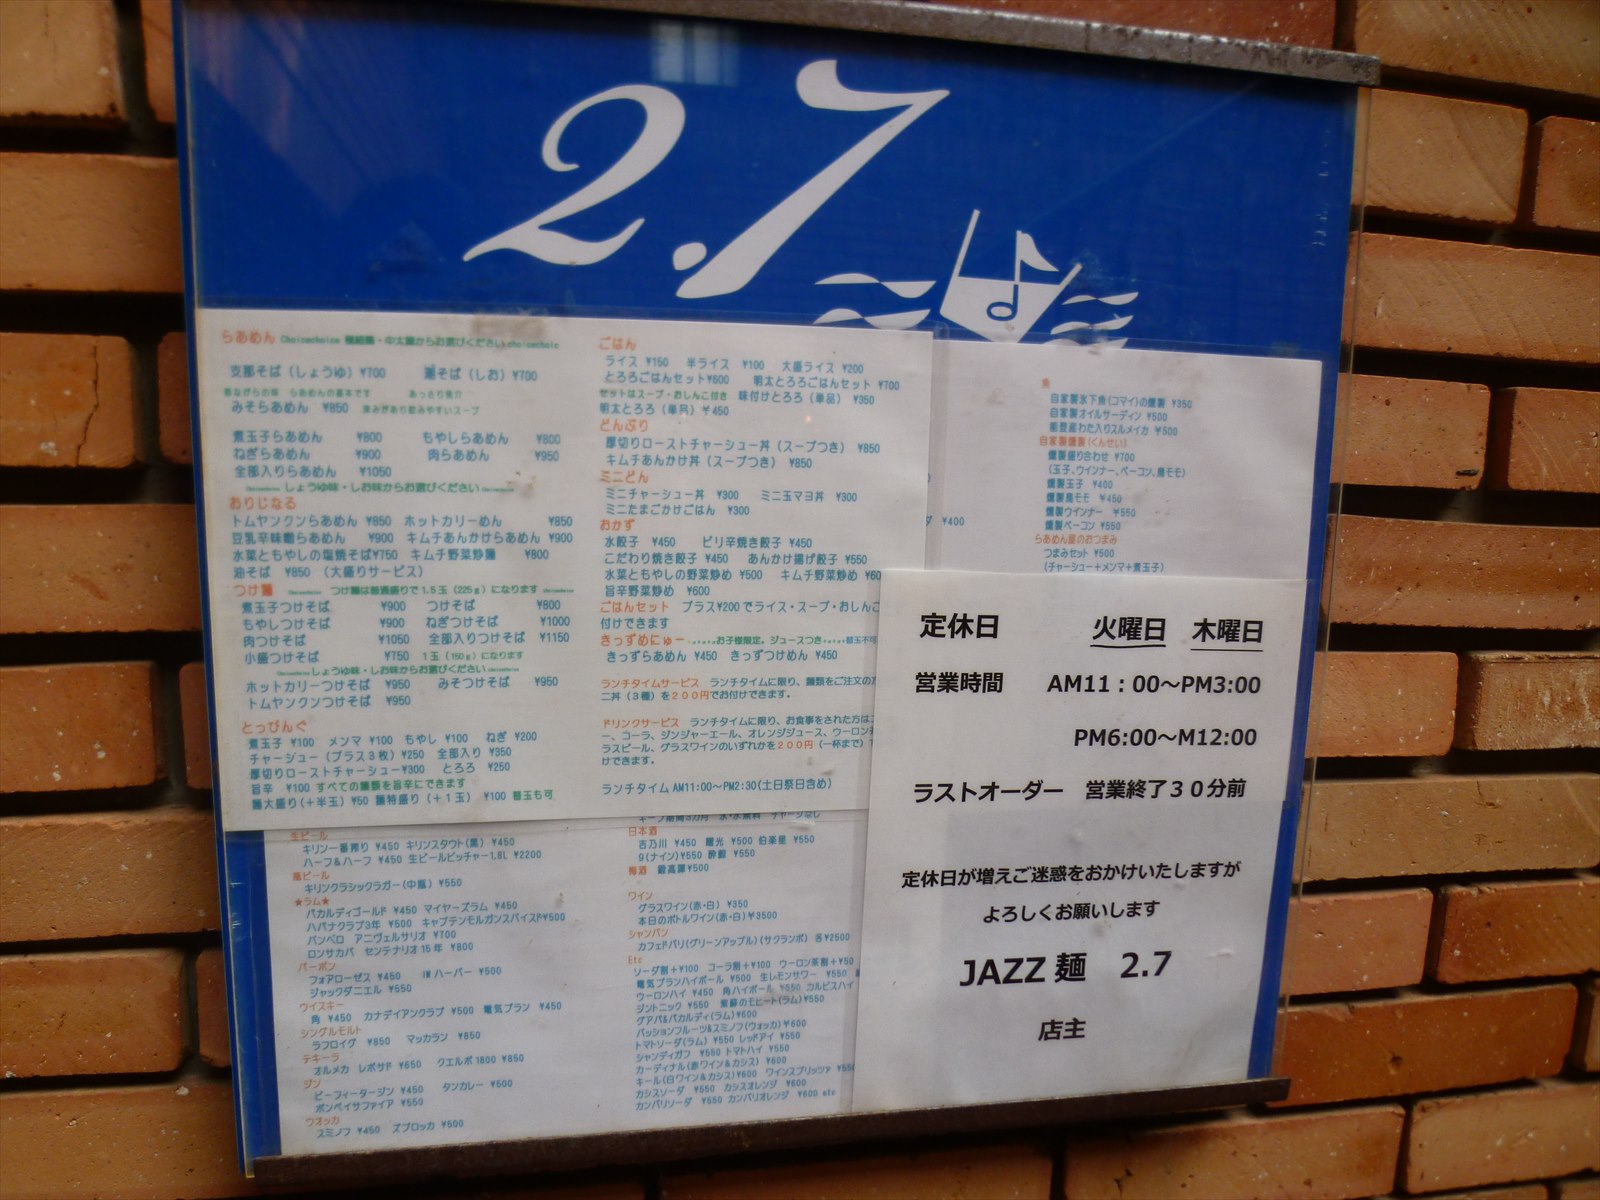 2.7
らあめん Choicechoice 極細麺・中太麺からお選びください choicechoic
支那そば（しょうゆ）¥700 麺そば（しお）¥700
昔ながらの味 らあめんの基本です あっさり魚介
みそらあめん ¥850 深みがあり飲みやすいスープ
煮玉子らあめん ¥800 もやしらあめん ¥800
ねぎらあめん ¥900 肉らあめん ¥950
全部入りらあめん ¥1050
しょうゆ味・しお味からお選びください
おりじなる
トムヤンクンらあめん ¥850 ホットカリーめん ¥850
豆乳辛味噌らあめん ¥900 キムチあんかけらあめん ¥900
水菜ともやしの塩焼そば¥750 キムチ野菜炒麺 ¥800
油そば ¥850 （大盛りサービス）
つけ麺 つけ麺は普通盛りで1.5玉（225g）になります
煮玉子つけそば ¥900 つけそば ¥800
もやしつけそば ¥900 ねぎつけそば ¥1000
肉つけそば ¥1050 全部入りつけそば ¥1150
小盛つけそば ¥750 1玉（150g）になります
しょうゆ味・しお味からお選びください
ホットカリーつけそば ¥950 みそつけそば ¥950
トムヤンクンつけそば ¥950
とっぴんぐ
煮玉子 ¥100 メンマ ¥100 もやし ¥100 ねぎ ¥200
チャーシュー（プラス3枚）¥250 全部入り ¥350
厚切りローストチャーシュー¥300 とろろ ¥250
旨辛 ¥100 すべての麺類を旨辛にできます
麺大盛り（＋半玉）¥50 麺特盛り（＋1玉） ¥100 替玉も可
ごはん
ライス ¥150 半ライス ¥100 大盛ライス ¥200
とろろごはんセット¥600 明太とろろごはんセット ¥700
セットはスープ・おしんこ付き 味付けとろろ（単品） ¥350
明太とろろ（単品）¥450
どんぶり
厚切りローストチャーシュー丼（スープつき） ¥850
キムチあんかけ丼（スープつき） ¥850
ミニどん
ミニチャーシュー丼 ¥300 ミニ玉マヨ丼 ¥300
ミニたまごかけごはん ¥300
おかず
水餃子 ¥450 ピリ辛焼き餃子 ¥450
こだわり焼き餃子 ¥450 あんかけ揚げ餃子 ¥550
水菜ともやしの野菜炒め ¥500 キムチ野菜炒め ¥60
旨辛野菜炒め ¥600
ごはんセット プラス¥200でライス・スープ・おしんこ
付けできます
きっずめにゅー お子様限定。ジュースつき 替玉不可
きっずらあめん ¥450 きっずつけめん ¥450
ランチタイムサービス ランチタイムに限り、麺類をご注文の
ニ丼（3種）を200円でお付けできます。
ドリンクサービス ランチタイムに限り、お食事をされた方は
ー、コーラ、ジンジャーエール、オレンジジュース、ウーロン
ラスビール、グラスワインのいずれかを200円（一杯まで）
けできます。
ランチタイム AM11:00～PM2:30（土日祭日含め）
魚
自家製氷下魚（コマイ）の燻製 ¥350
自家製オイルサーディン ¥500
能登産わた入りスルメイカ ¥500
自家製燻製（くんせい）
燻製盛り合わせ ¥700
（玉子、ウインナー、ベーコン、鳥モモ）
燻製玉子 ¥400
燻製鳥モモ ¥450
燻製ウインナー ¥550
ダ ¥400
燻製ベーコン ¥550
らあめん屋のおつまみ
つまみセット ¥500
（チャーシュー＋メンマ＋煮玉子）
生ビール
キリン一番搾り ¥450 キリンスタウト（黒） ¥450
ハーフ＆ハーフ ¥450 生ビールピッチャー1.8L ¥2200
瓶ビール
キリンクラシックラガー（中瓶） ¥550
★ラム★
バカルディゴールド ¥450 マイヤーズラム ¥450
ハバナクラブ3年 ¥500 キャプテンモルガンスパイスド¥500
パンペロ アニヴェルサリオ ¥700
ロンサカパ センテナリオ15年 ¥800
バーボン
フォアローゼス ¥450 IWハーパー ¥500
ジャックダニエル ¥550
ウイスキー
角 ¥450 カナディアンクラブ ¥500 電気ブラン ¥450
シングルモルト
ラフロイグ ¥850 マッカラン ¥850
テキーラ
オルメカ レポサド ¥650 クエルボ1800 ¥850
ジン
ビーフィータージン ¥450 タンカレー ¥500
ボンベイサファイア ¥550
ウオッカ
スミノフ ¥450 ズブロッカ ¥500
キープ期間3カ月 氷・水無料 チャージなし
日本酒
吉乃川 ¥450 曙光 ¥500 伯楽星 ¥550
9（ナイン）¥550 酔鯨 ¥550
梅酒 ¥500
ワイン
グラスワイン（赤・白） ¥350
本日のボトルワイン（赤・白）¥3500
シャンパン
カフェドパリ（グリーンアップル）（サクランボ） 各¥2500
Etc
ソーダ割＋¥100 コーラ割＋¥100 ウーロン茶割＋¥50
電気ブランハイボール ¥500 生レモンサワー ¥550
ウーロンハイ ¥450 角ハイボール ¥550 カルピスハイ
ジントニック ¥550 紫蘇のモヒート（ラム）¥550
グアバ&バカルディ（ラム）¥600
パッションフルーツ&スミノフ（ウォッカ）¥600
トマトソーダ（ラム） ¥550 レッドアイ ¥550
シャンディガフ ¥550 トマトハイ ¥550
カーディナル（赤ワイン&カシス） ¥600
キール（白ワイン&カシス）¥600 ワインスプリッツァ ¥55
カシスソーダ ¥550 カシスオレンジ ¥600
カンパリソーダ ¥550 カンパリオレンジ ¥600 etc
定休日 火曜日 木曜日
営業時間 AM11：00～PM3:00
PM6:00～M12:00
ラストオーダー 営業終了３０分前
定休日が増えご迷惑をおかけいたしますが
よろしくお願いします
JAZZ 麺 2.7
店主